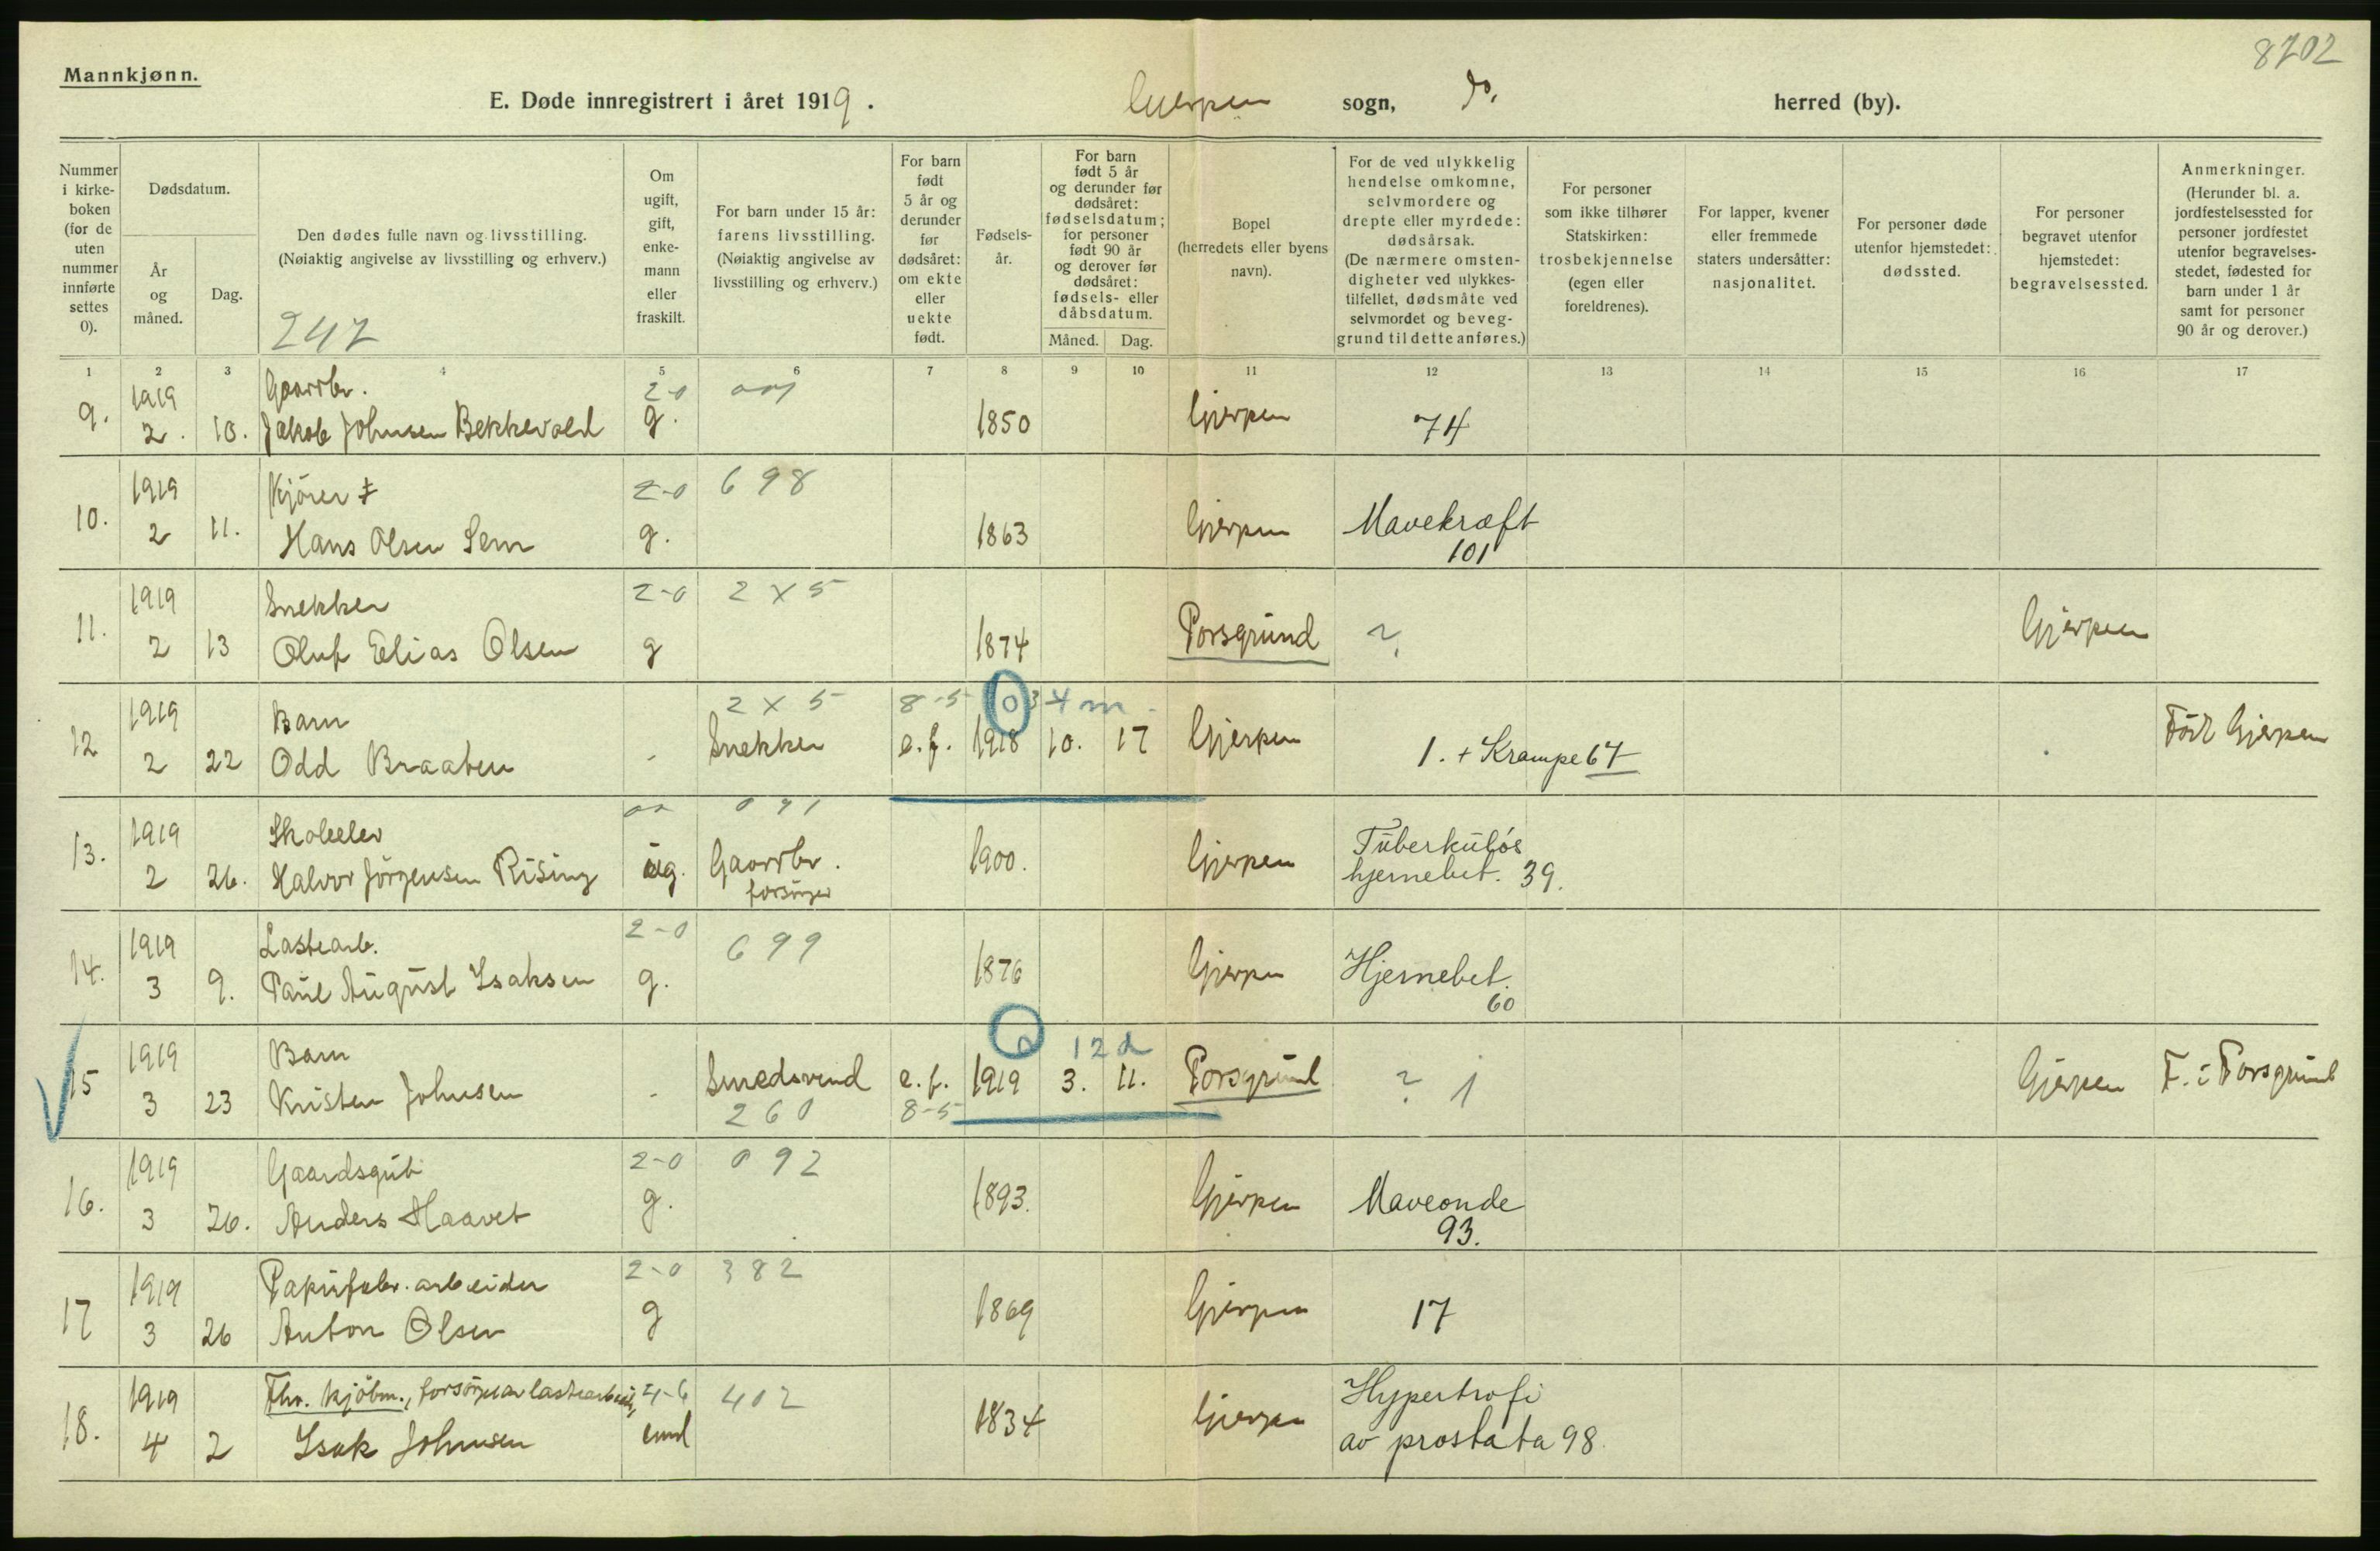 8702
Mannkjønn.
E. Døde innregistrert i året 1919. Gjerpen sogn, do. herred (by).
Nummer i kirke-boken (for de uten nummer innførte settes 0).
Dødsdatum.
År og måned.
Dag.
Den dødes fulle navn og livsstilling.
(Nøiaktig angivelse av livsstilling og erhverv.)
247
Om ugift, gift, enke-mann eller fraskilt.
For barn under 15 år: farens livsstilling.
(Nøiaktig angivelse av livsstilling og erhverv.)
For barn født 5 år og derunder før dødsåret: om ekte eller uekte født.
Fødsels-år.
For barn født 5 år og derunder før dødsåret: fødselsdatum; for personer født 90 år og derover før dødsåret: fødsels- eller dåbsdatum.
Måned.
Dag.
Bopel (herredets eller byens navn).
For de ved ulykkelig hendelse omkomne, selvmordere og drepte eller myrdede: dødsårsak. (De nærmere omsten-digheter ved ulykkes-tilfellet, dødsmåte ved selvmordet og beveg-grund til dette anføres.)
For personer som ikke tilhører Statskirken: trosbekjennelse (egen eller foreldrenes).
For lapper, kvener eller fremmede staters undersåtter: nasjonalitet.
For personer døde utenfor hjemstedet: dødssted.
For personer begravet utenfor hjemstedet: begravelsessted.
Anmerkninger.
(Herunder bl. a. jordfestelsessted for personer jordfestet utenfor begravelses-stedet, fødested for barn under 1 år samt for personer 90 år og derover.)
1 2 3 4 5 6 7 8 9 10 11 12 13 14 15 16 17
1919 Gaardbr. 2-0
9. 2. 10. Jakob Johnsen Bekkevold g. 1850 Gjerpen 74
1919 Kjörer 2-0 698
10. 2 11. Hans Olsen Sem g. 1863 Gjerpen Mavekræft
101
1919 Snekker 2-0 2 X 5
11. 2 13 Oluf Elias Olsen g 1874 Porsgrund ? Gjerpen
1919 Barn 2 X 5 8-5 0 4 m
12 2 22 Odd Braaten - Snekker e.f. 1918 10. 17 Gjerpen 1. + Krampe 67 Född Gjerpen
1919 Skoleelev 091
13. 2 26. Halvor Jörgensen Rising ug. Gaardbr. 1900. Gjerpen Tuberkulös
forsörger hjernebet. 39.
1919 Lastearb. 2-0 699
14. 3 9. Paul August Isaksen g. 1876 Gjerpen Hjernebet.
60
1919 Barn 0 12 d
15 3 23 Kristen Johnsen - Smedsvend e.f. 1919 3. 11. Porsgrund ? 1 Gjerpen F. i Porsgrund
260 8-5
1919 Gaardsgut 2-0 092
16. 3 26. Anders Haavet g. 1893. Gjerpen Maveonde
93.
1919 Papirfabr. arbeider 2-0 382
17 3 26 Anton Olsen g 1869 Gjerpen 17
1919 Fhv. kjöbm., forsörges av lastearbeid, 4-6 402
18. 4 2 Isak Johnsen enml 1834 Gjerpen Hypertrofi
av prostata 98.